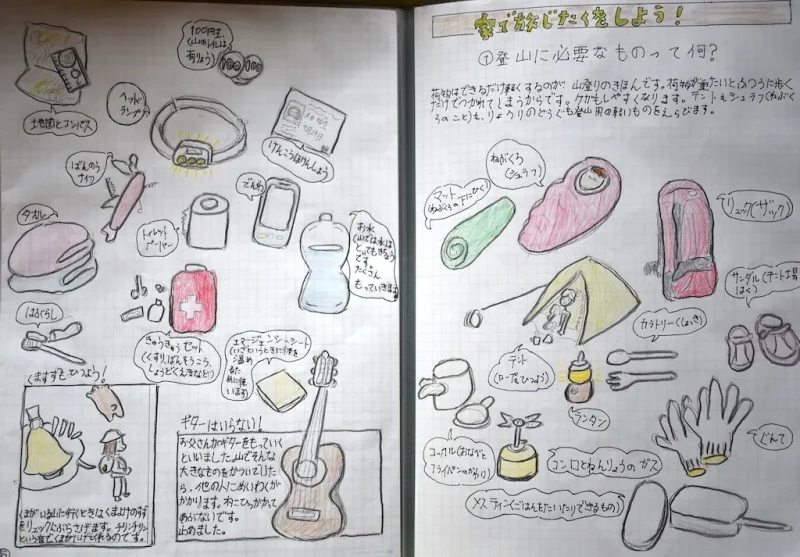 100円玉
(山のトイレは
有りょう)
地図とコンパス
ヘッド
ランプ
けんこうほけんしょう
ばんのう
ナイフ
でんわ
タオル
トイレット
ペーパー
お水
(山では水は
とってもきちょう
です。
たくさん
もっていきます)
はぶらし
きゅうきゅうセット
(くすり、ばんそうこう、
しょうどくえきなど)
エマージェンシーシート
(いざというときに体を
温め
るた
めに使
います)
ますずもひつよう!
くまがいる山に行くときはくまよけのすず
をリュックにぶらさげます。チリンチリン
という音で、くまがにげてくれるのです。
ギターはいらない!
お父さんがギターをもっていく
といいました。山でそんな
大きなものをかついでいたら
、他の人にめいわくが
かかります。木にひっかかって
あぶないです。
止めました。
家で旅じたくをしよう!
①登山に必要なものって何?
荷物はできるだけ軽くするのが、山登りのきほんです。荷物が重たいとふつうに歩く
だけでつかれてしまうからです。ケガもしやすくなります。テントもシュラフ(ねぶく
ろのこと)も、りょうりのどうぐも登山用の軽いものをえらびます。
ねぶくろ
(シュラフ)
マット
(ねぶくろの下にひく)
リュック(ザック)
サンダル(テント場で
はく)
カラトリー(しょっき)
テント
(ロープもひつよう)
ランタン
コッヘル(おなべと
フライパンのかわり)
コンロとねんりょうのガス
ぐんて
メスティン(ごはんをたいたりできるもの)